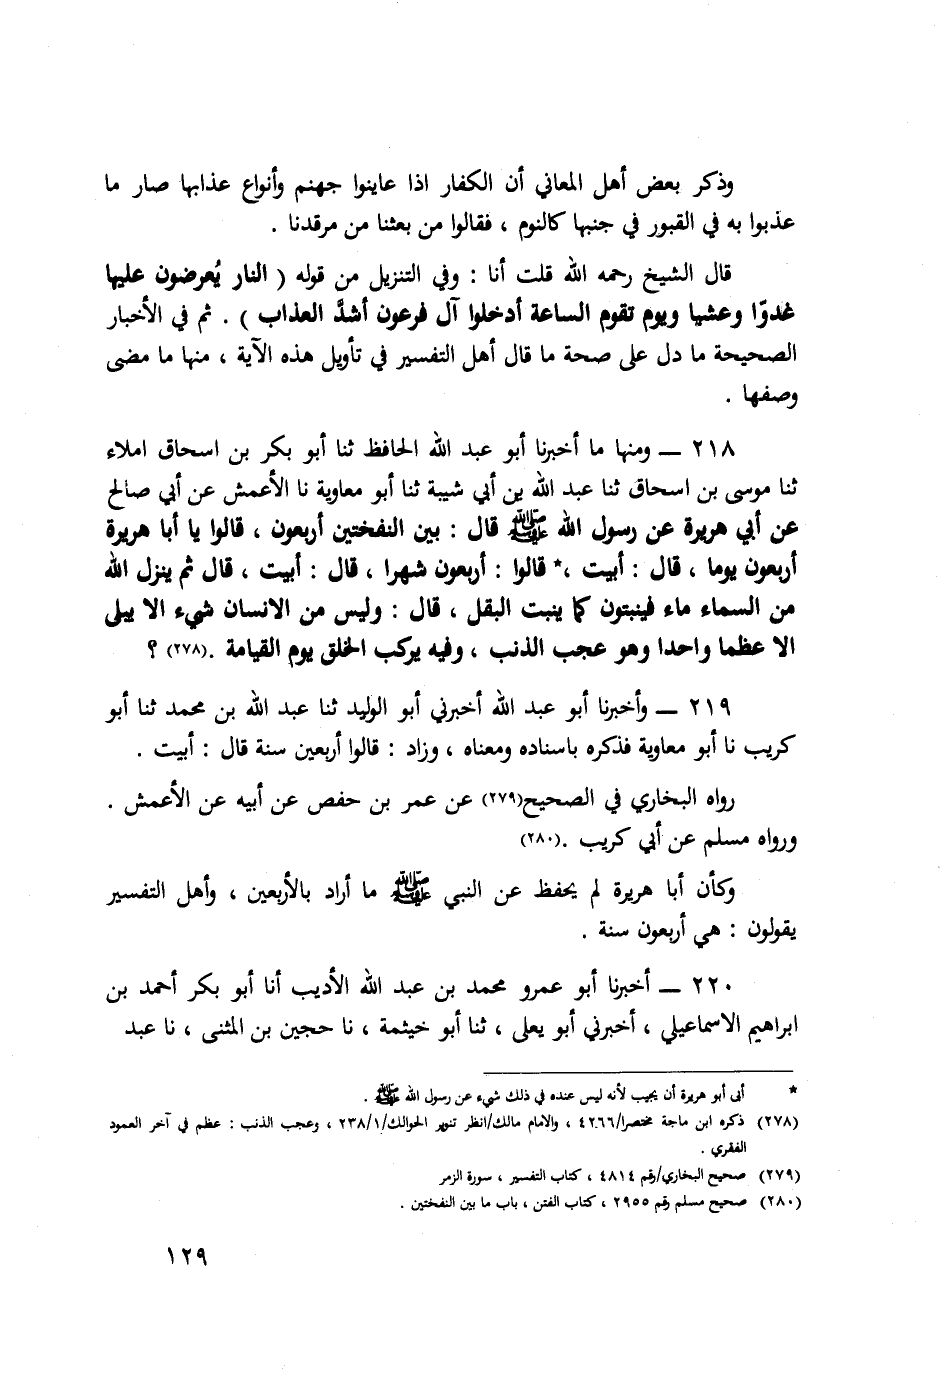 وذكر بعض أهل المعاني أن الكفار اذا عاينوا جهنم وأنواع عذابها صار ما
عذبوا به في القبور في جنبها كالنوم ، فقالوا من بعثنا من مرقدنا .
قال الشيخ رحمه الله قلت أنا : وفي التنزيل من قوله ( النار يُعرضون عليها
غدوّا وعشيا ويوم تقوم الساعة أدخلوا آل فرعون أشدَّ العذاب ) . ثم في الأخبار
الصحيحة ما دل على صحة ما قال أهل التفسير في تأويل هذه الآية ، منها ما مضى
وصفها .
٢١٨ ــ ومنها ما أخبرنا أبو عبد الله الحافظ ثنا أبو بكر بن اسحاق املاء
ثنا موسى بن اسحاق ثنا عبد الله بن أبي شيبة ثنا أبو معاوية نا الأعمش عن أبي صالح
عن أبي هريرة عن رسول الله ﷺ قال : بين النفختين أربعون ، قالوا يا أبا هريرة
أربعون يوما ، قال : أبيت ،* قالوا : أربعون شهرا ، قال : أبيت ، قال ثم ينزل الله
من السماء ماء فينبتون كما ينبت البقل ، قال : وليس من الانسان شيء الا يبلى
الا عظما واحدا وهو عجب الذنب ، وفيه يركب الخلق يوم القيامة .(٢٧٨) ؟
٢١٩ ــ وأخبرنا أبو عبد الله أخبرني أبو الوليد ثنا عبد الله بن محمد ثنا أبو
كريب نا أبو معاوية فذكره باسناده ومعناه ، وزاد : قالوا أربعين سنة قال : أبيت .
رواه البخاري في الصحيح(٢٧٩) عن عمر بن حفص عن أبيه عن الأعمش .
ورواه مسلم عن أبي كريب .(٢٨٠)
وكأن أبا هريرة لم يحفظ عن النبي ﷺ ما أراد بالأربعين ، وأهل التفسير
يقولون : هي أربعون سنة .
٢٢٠ ــ أخبرنا أبو عمرو محمد بن عبد الله الأديب أنا أبو بكر أحمد بن
ابراهيم الاسماعيلي ، أخبرني أبو يعلى ، ثنا أبو خيثمة ، نا حجين بن المثنى ، نا عبد
* أبى أبو هريرة أن يجيب لأنه ليس عنده في ذلك شيء عن رسول الله ﷺ .
(٢٧٨) ذكره ابن ماجة مختصرا/٤٢٦٦ ، والامام مالك/انظر تنوير الحوالك/٢٣٨/١ ، وعجب الذنب : عظم في آخر العمود
الفقري .
(٢٧٩) صحيح البخاري/رقم ٤٨١٤ ، كتاب التفسير ، سورة الزمر
(٢٨٠) صحيح مسلم رقم ٢٩٥٥ ، كتاب الفتن ، باب ما بين النفختين .
١٢٩